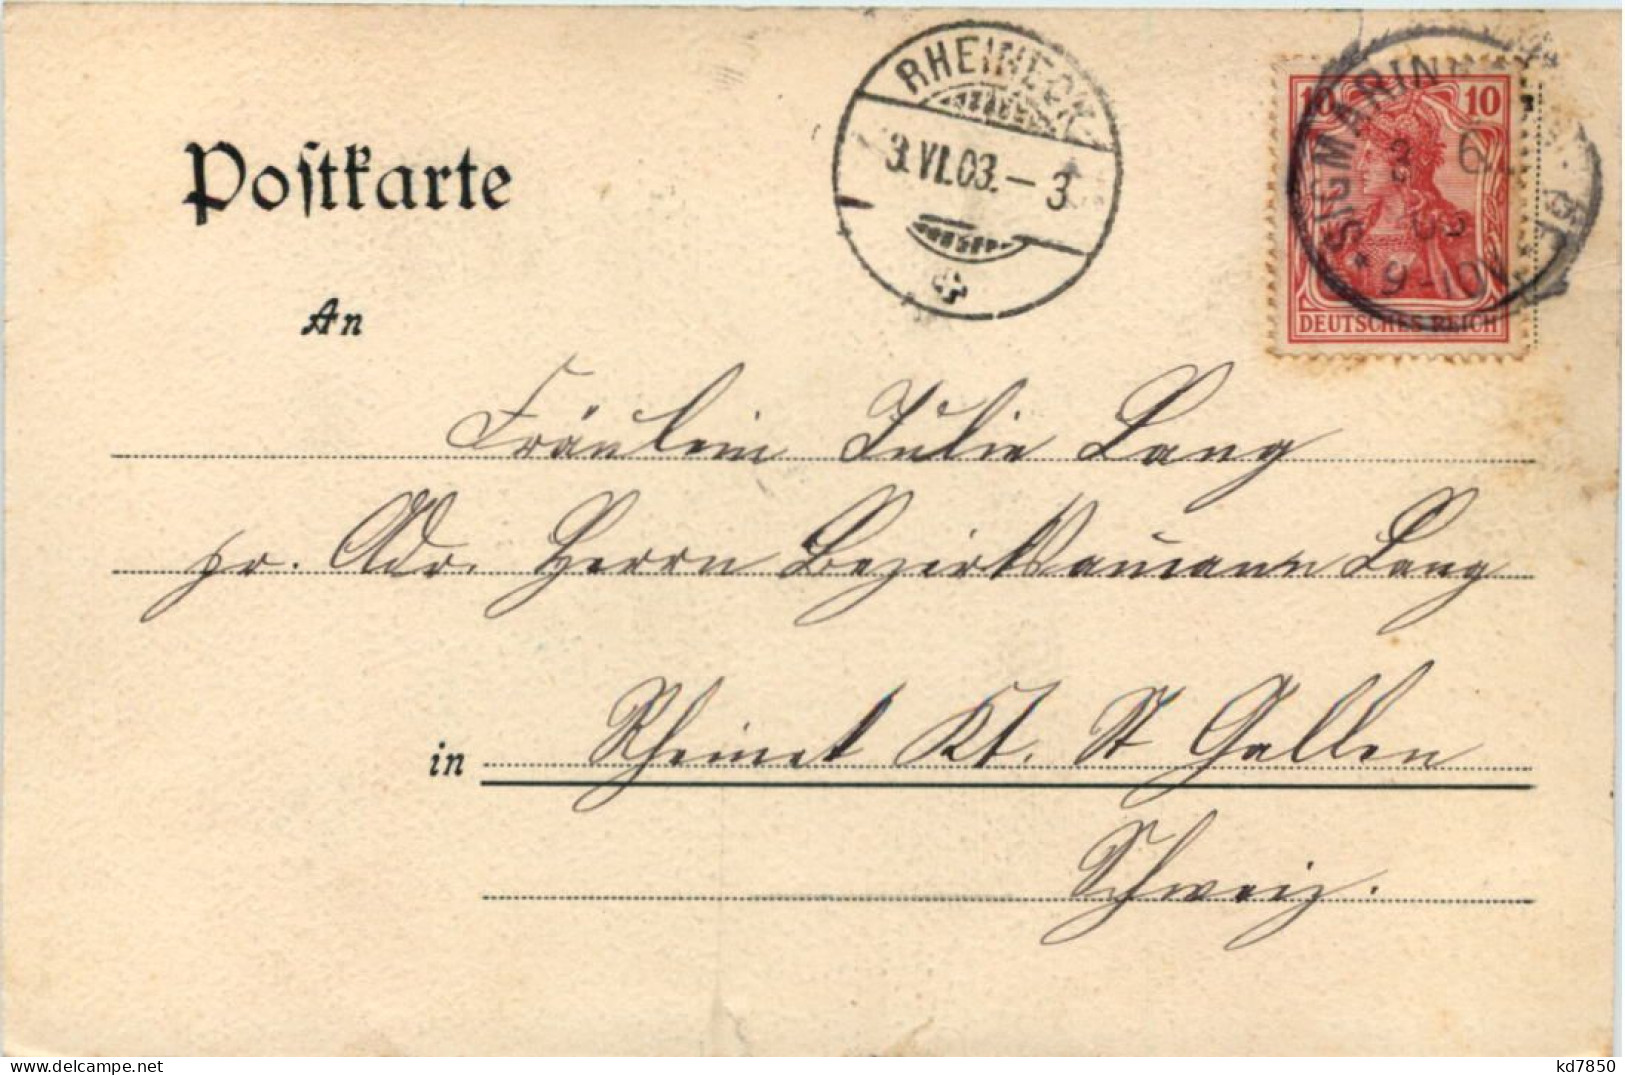 RHEINECK
3.VI.03.–3
10 10
SIGMARINGEN
3 6
03
* 9-10V. *
DEUTSCHES REICH
Postkarte
An
Fräulein Julie Lang
pr. Adr. Herrn Bezirksamann Lang
in Rheinek Kt. St Gallen
Schweiz.
https://www.delcampe.net
kd7850